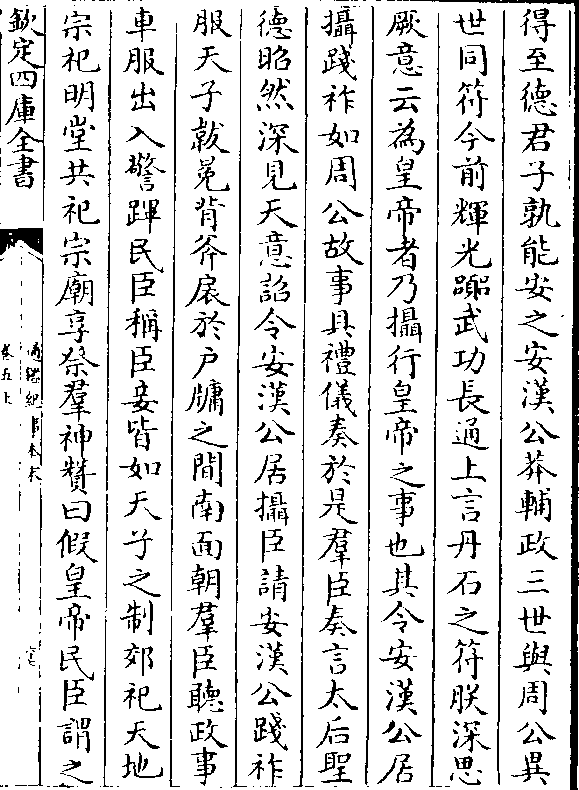 得至德君子孰能安之安漢公莽輔政三世與周公異
世同符今前輝光躢武功長通上言丹石之符朕深思
厥意云為皇帝者乃攝行皇帝之事也其令安漢公居
攝踐祚如周公故事具禮儀奏於是羣臣奏言太后聖
德昭然深見天意詔令安漢公居攝臣請安漢公踐祚
服天子韍冕背斧扆於戶牖之間南面朝羣臣聽政事
車服出入警蹕民臣稱臣妾皆如天子之制郊祀天地
宗祀明堂共祀宗廟享祭羣神贊曰假皇帝民臣謂之
欽定四庫全書
通鑑紀事本末
卷五上